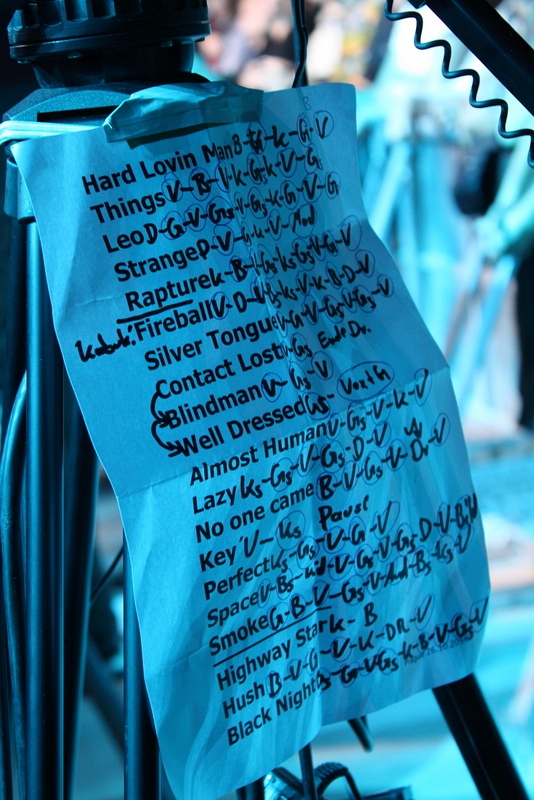 Hard Lovin Man B-G-K-G-V
Things V-B-V-K-G-K-V-G
Leo D-G-V-Gs-V-Gs-K-G-V-G
Strange D-V-G-K-V-And
Rapture K-B-
Fireball V-D-V-Bs-Ks-V-K-B-D-V
Silver Tongue V-G-V-Gs-V-Gs-V
Contact Lost Gs Ende Dr.
Blindman V-Gs-V
Well Dressed Gs- V
Almost Human V-Gs-V-K-V
Lazy Ks-Gs-V-Gs-D-V
No one came B-V-Gs-V-Dr-V
Key V-Ks Pause
Perfect Ks-Gs-V-G-V
Space V-Bs-
Smoke G-B-V-Gs-V-And-Bs-Ks-V
Highway Star K-B
Hush B-V-G-V-K-DR-V
Black Night Gs-G-V-Gs-K-B-V-Gs-V